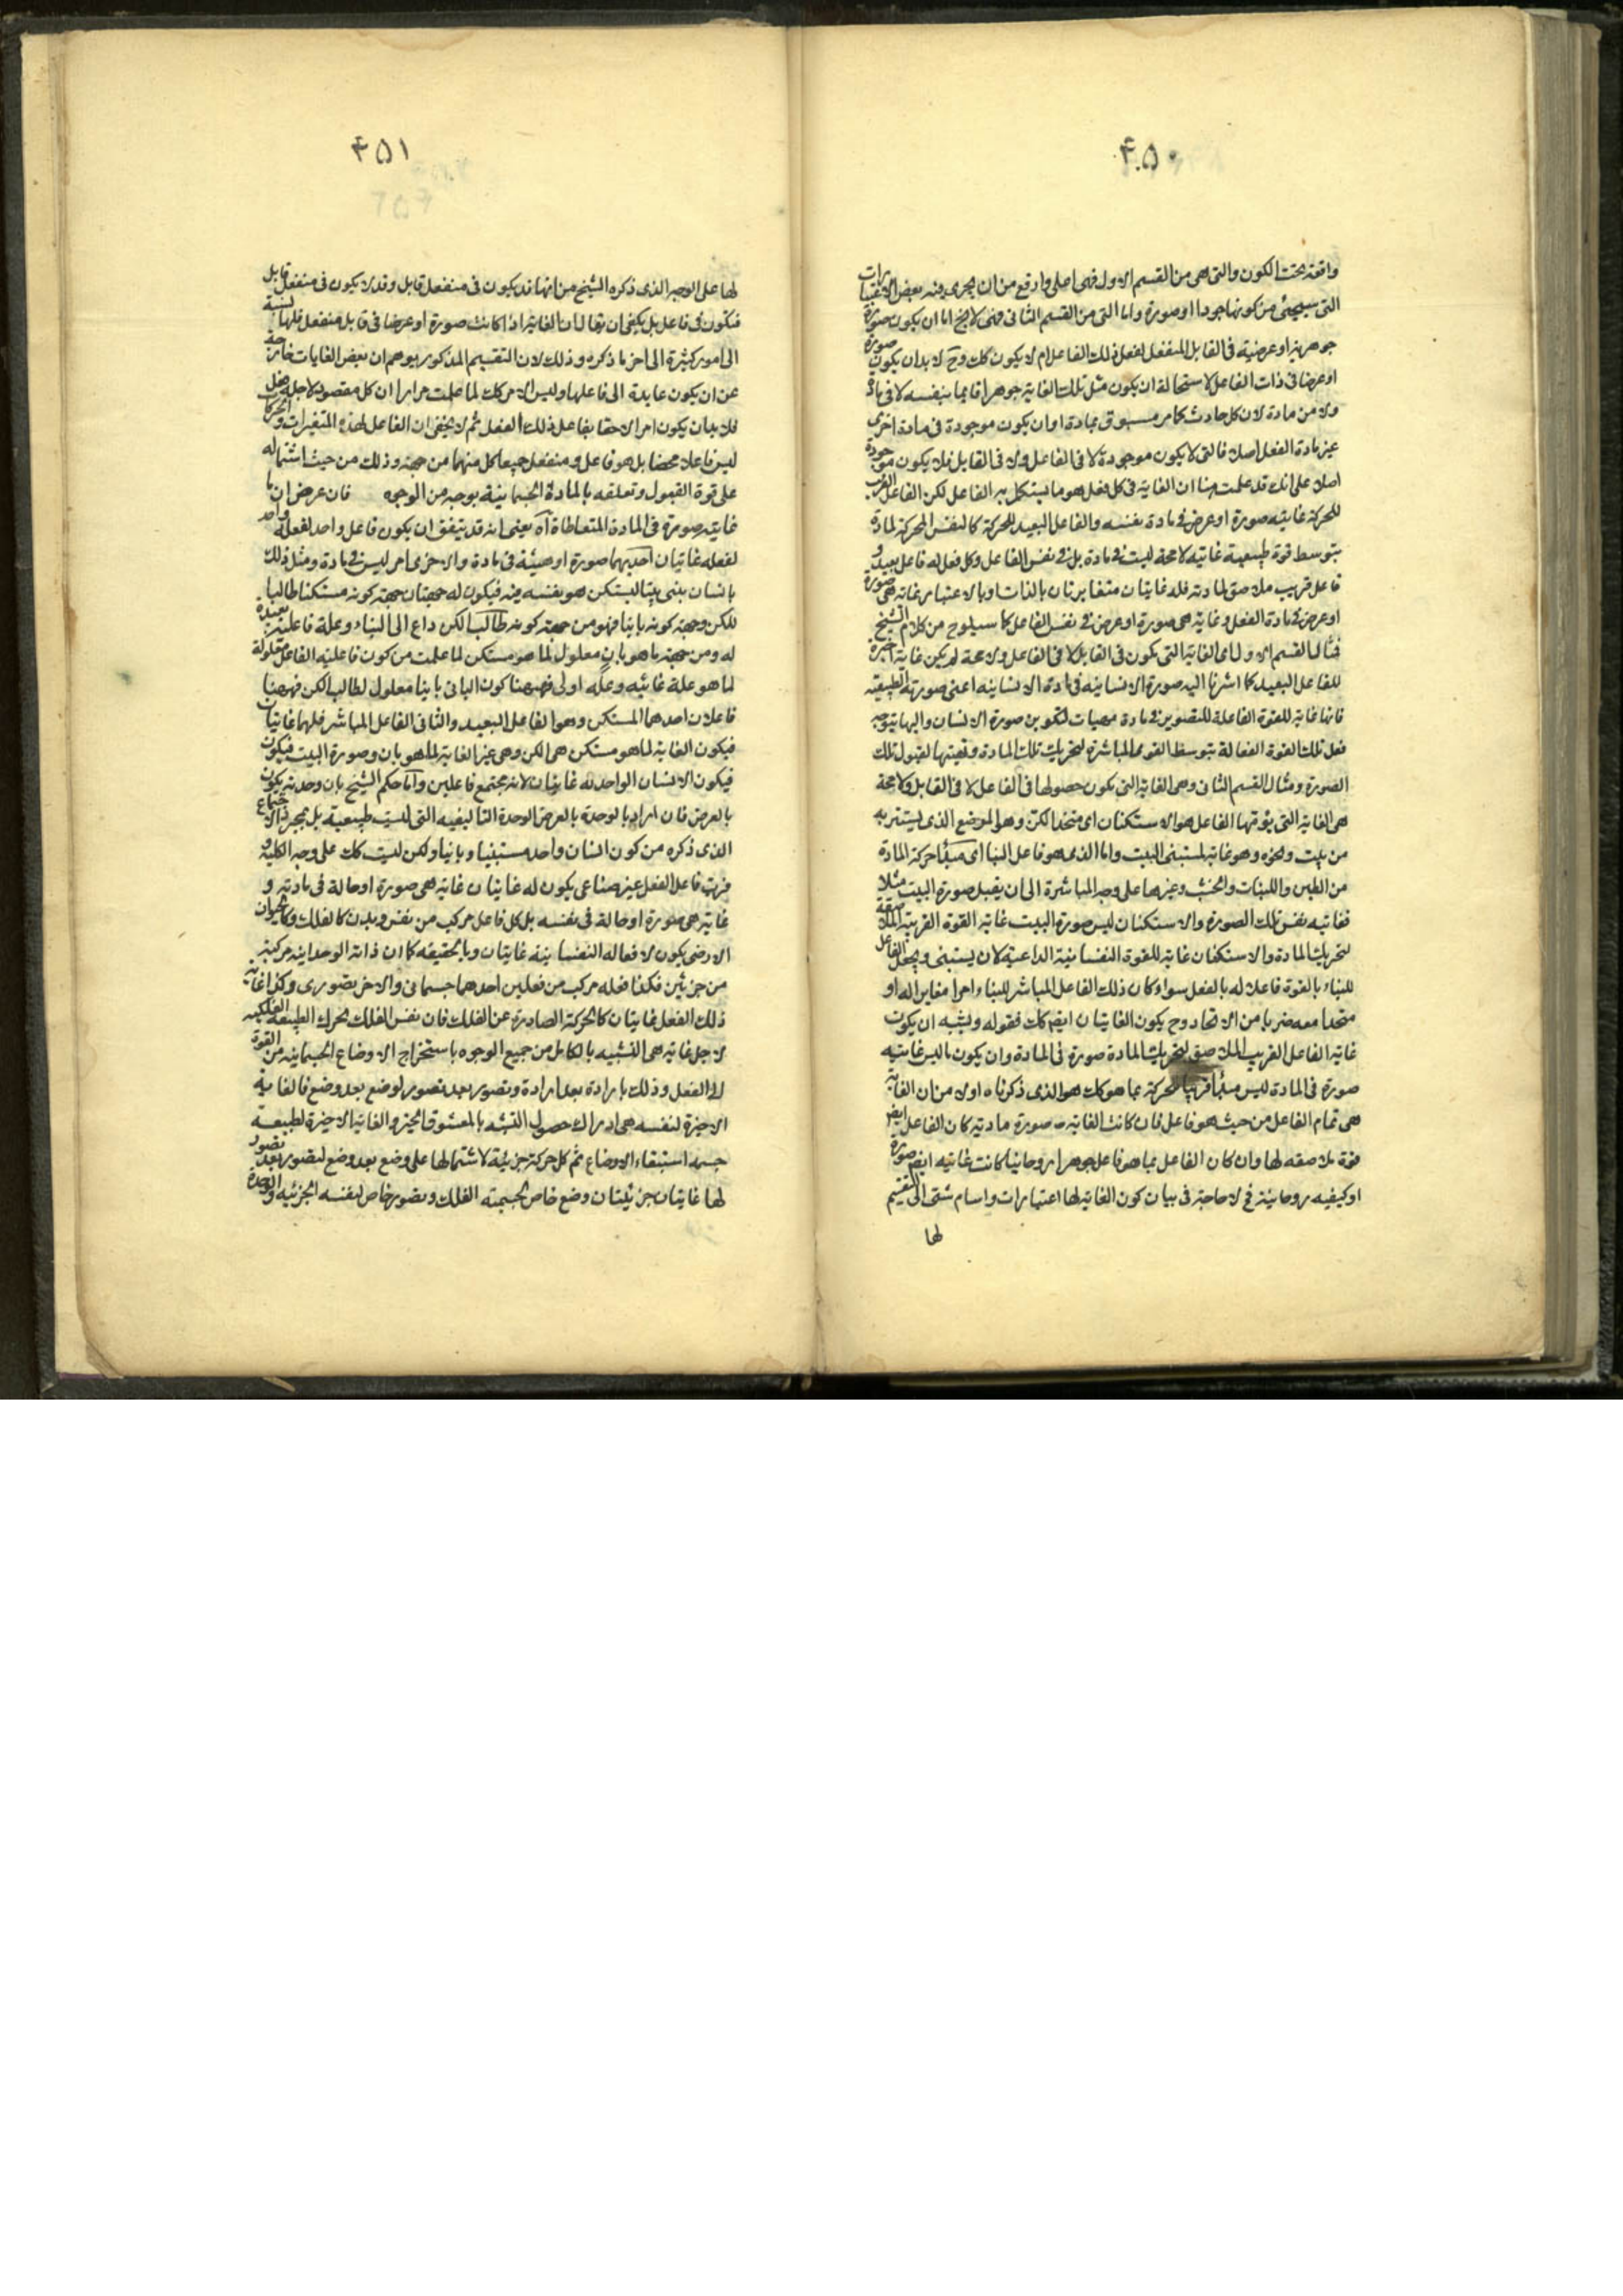 ۴۵۰
واقعة تحت الكون والتى هى من القسم الاول فهى اعلى وارفع من ان يجرى فيه بعض الاعتبارات
التى سيجئ من كونها جودا او صورة واما التى من القسم الثانى فهى لا يخ اما ان يكون صورة
جوهرية او عرضية فى القابل المنفعل لفعل ذلك الفاعل ام لا يكون كك وح لا بد ان يكون صورة
او عرضا فى ذات الفاعل لاستحالة ان يكون مثل تلك الغاية جوهرا قايما بنفسه لا فى مادة
ولا من مادة لان كل حادث كما مر مسبوق بمادة او ان يكون موجودة فى مادة اخرى
غير مادة الفعل اصلا فالتى لا يكون موجودة لا فى الفاعل ولا فى القابل فلا يكون موجودة
اصلا على انك قد علمت منا ان الغاية فى كل فعل هو ما يستكمل به الفاعل لكن الفاعل القريب
للحركة غايته صورة او عرض فى مادة نفسه والفاعل البعيد للحركة كالنفس المحركة لمادة
بتوسط قوة طبيعية غايته لا محة ليست فى مادة بل فى نفس الفاعل وكل فعل له فاعل بعيد و
فاعل قريب ملاصق لمادته فله غايتان متغايرتان بالذات او بالاعتبار غاية هى صورة
او عرض فى مادة الفعل وغاية هى صورة او عرض فى نفس الفاعل كما سيلوح من كلام الشيخ
فمثال القسم الاول اى الغاية التى يكون فى القابل لا فى الفاعل ولا محة لم يكن غاية اخيرة
للفاعل البعيد كما اشرنا اليه صورة الانسانية فى مادة الانسانية اعنى صورته الطبيعية
فانها غاية للقوة الفاعلة للتصوير فى مادة لتكوين صورة الانسان واليها يتوجه
فعل تلك القوة الفعالة بتوسط القوى المباشرة لتحريك تلك المادة لقبول تلك
الصورة ومثال القسم الثانى وهى الغاية التى يكون حصولها فى الفاعل لا فى القابل ولا محة
هى الغاية التى الفاعل هو الاستكنان اى متخذ الكن وهو الموضع الذى يستتر به
من بيت ونحوه وهو غاية لمستبنى البيت واما الذى هو فاعل البنا اى مبدأ حركة المادة
من الطين واللبنات والخشب وغيرها على وجه المباشرة الى ان يقبل صورة البيت مثلا
فغايته نفس تلك الصورة والاستكنان ليس صورة البيت غاية القوة القريبة الملاصقة
لتحريك المادة والاستكنان غاية للقوة النفسانية الداعية لان يستبنى ويجعل الفاعل
للبناء بالقوة فاعلا له بالفعل سواء كان ذلك الفاعل المباشر للبناء امرا مغايرا له او
متحدا معه ضربا من الاتحاد وح يكون الغايتان ايضا كك فقوله ويشبه ان يكون
غاية الفاعل القريب الملاصق لتحريك المادة صورة فى المادة وان يكون ما ليس غايته
صورة فى المادة ليس مبدأ قريبا للحركة بما هو كك هو الذى ذكرناه اولا من ان الغاية
هى تمام الفاعل من حيث هو فاعل فان كانت الغاية صورة مادية كان الفاعل ايض
قوة ملاصقه لها وان كان الفاعل بما هو فاعل جوهرا روحانيا كانت غايته ايض صورة
او كيفيه روحانية فح لا حاجة فى بيان كون الغاية لها اعتبارات واسام شتى الى التقسيم
لها
۴۵۱
لها على الوجه الذى ذكره الشيخ من انها قد يكون فى منفعل قابل وقد لا يكون فى منفعل قابل
فتكون فى فاعل بل يكفى ان يقال ان الغاية اذا كانت صورة او عرضا فى قابل منفعل فلها نسبة
الى امور كثيرة الى اخر ما ذكره وذلك لان التقسيم المذكور يوهم ان بعض الغايات خارجة
عن ان يكون عايدة الى فاعلها وليس الامر كك لما علمت مرارا ان كل مقصود لاجله فعل
فلا بد ان يكون امرا لاحقا بفاعل ذلك الفعل ثم لا يخفى ان الفاعل لهذه المتغيرات والحركات
ليس فاعلا محضا بل هو فاعل ومنفعل جميعا كل منهما من جهة وذلك من حيث اشتماله
على قوة القبول وتعلقه بالمادة الجسمانية بوجه من الوجوه فان عرض ان ما
غايته صورة فى المادة المتعاطاة آه يعنى انه قد يتفق ان يكون فاعل واحد لفعله واحد
لفعله غايتان احديهما صورة او هيئة فى مادة والاخرى امر ليس فى مادة ومثل ذلك
بانسان بنى بيتا ليستكن هو بنفسه فيه فيكون له جهتان جهة كونه مستكنا طالبا
للكن وجهة كونه بانيا فهو من جهة كونه طالب الكن داع الى البناء وعلة فاعلية بعيدة
له ومن جهة ما هو بان معلول لما هو مستكن لما علمت من كون فاعلية الفاعل معلولة
لما هو علة غائيه وعلة اولى فههنا كون البانى بانيا معلول لطالب الكن فههنا
فاعلان احدهما المستكن وهو الفاعل البعيد والثانى الفاعل المباشر فلهما غايتان
فيكون الغاية لما هو مستكن هى الكن وهى غير الغاية لما هو بان وصورة البيت فيكون
فيكون الانسان الواحد له غايتان لانه مجتمع فاعلين واما حكم الشيخ بان وحدته يكون
بالعرض فان اراد بالوحدة بالعرض الوحدة التاليفيه التى ليست طبيعية بل بمجرد الاجتماع
الذى ذكره من كون انسان واحد مستبنيا وبانيا ولكن ليست كك على وجه الكلية و
فرب فاعل الفعل غير صناعى يكون له غايتان غاية هى صورة او حالة فى مادته و
غاية هى صورة او حالة فى نفسه بل كل فاعل مركب من نفس وبدن كالفلك وكالحيوان
الارضى يكون لافعاله النفسانية غايتان وبالحقيقه كما ان ذاته الوحدانية مركبة
من جزئين فكذا فعله مركب من فعلين احدهما جسمانى والاخر تصورى وكذا غاية
ذلك الفعل غايتان كالحركة الصادرة عن الفلك فان نفس الفلك تحرك الطبيعة الفلكيه
لاجل غاية هى التشبيه بالكامل من جميع الوجوه باستخراج الاوضاع الجسمانيه من القوة
الى الفعل وذلك بارادة بعد ارادة وتصور بعد تصور لوضع بعد وضع فالغاية
الاخيرة لنفسه هى ادراك حصول التشبه بالمعشوق الخير والغاية الاخيرة لطبيعة
جسمه استبقاء الاوضاع ثم كل حركة جزيئة لاشتمالها على وضع بعد وضع لتصور بعد تصور
لها غايتان جزئيتان وضع خاص لجسمية الفلك وتصور خاص لنفسه الجزئيه والوحدة